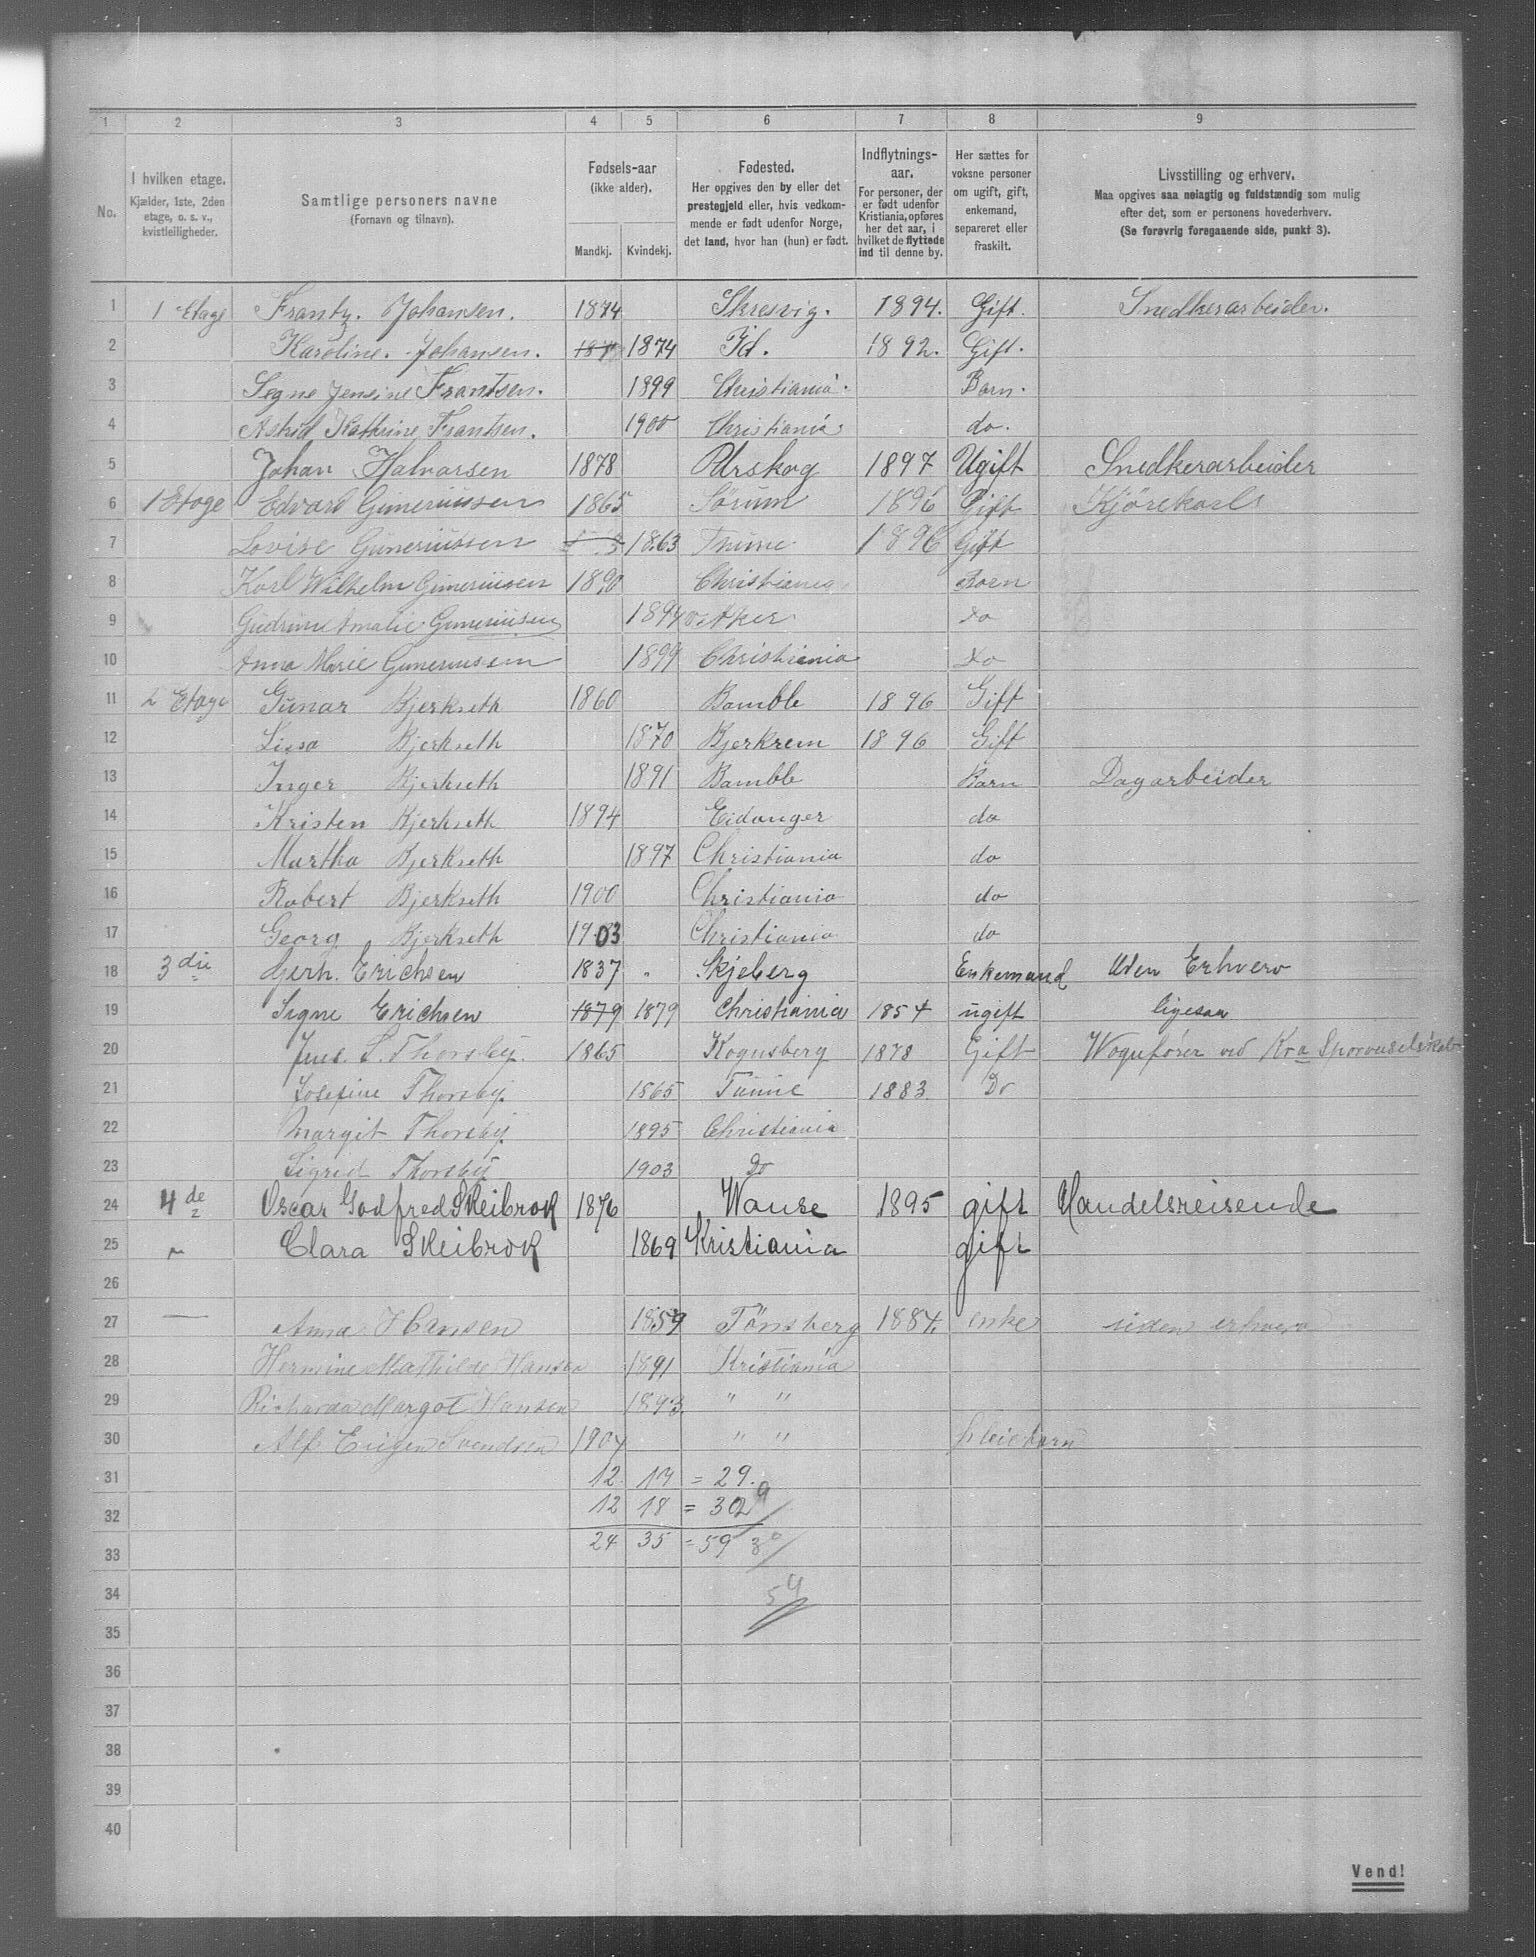 1 2 3 4 5 6 7 8 9
No.
I hvilken etage.
Kjælder, 1ste, 2den
etage, o. s. v.,
kvistleiligheder.
Samtlige personers navne
(Fornavn og tilnavn).
Fødsels-aar
(ikke alder).
Mandkj. Kvindekj.
Fødested.
Her opgives den by eller det
prestegjeld eller, hvis vedkom-
mende er født udenfor Norge,
det land, hvor han (hun) er født.
Indflytnings-
aar.
For personer, der
er født udenfor
Kristiania, opføres
her det aar, i
hvilket de flyttede
ind til denne by.
Her sættes for
voksne personer
om ugift, gift,
enkemand,
separeret eller
fraskilt.
Livsstilling og erhverv.
Maa opgives saa nøiagtig og fuldstændig som mulig
efter det, som er personens hovederhverv.
(Se forøvrig foregaaende side, punkt 3).
1 1 Etage Frantz. Johansen. 1874 Skresvig. 1894. Gift. Snedkerarbeider.
2 Karoline. Johansen. 187 1874 Id. 1892. Gift.
3 Segne Jensine Frantsen. 1899 Christiania. Barn.
4 Astrid Kathrine Frantsen. 1900 Christiania do.
5 Johan Halvarsen 1878 Urskog 1897 Ugift Snedkerarbeider
6 1 Etage Edvard Gimeriussen 1865 Sørum 1896 Gift Kjørekarl
7 Lovise Gimeriussen 1863 1896 Gift
8 Karl Wilhelm Gimeriussen 1890 Christiania Barn
9 Gudrun Amalie Gimeriussen 1894 V Aker do
10 Anna Marie Gimeriussen 1899 Christiania do
11 2 Etage Gunar Bjerkseth 1860 Bamble 1896 Gift
12 Lissa Bjerkseth 1870 Bjerkrem 1896 Gift
13 Inger Bjerkseth 1891 Bamble Barn Dagarbeider
14 Kristen Bjerkseth 1894 Eidanger do
15 Martha Bjerkseth 1897 Christiania do
16 Robert Bjerkseth 1900 Christiania do
17 Georg Bjerkseth 1903 Christiania do
18 3 die Gerh. Erichsen 1837 " Skjeberg Enkemand Uden Erhverv
19 Signe Erichsen 1879 1879 Christiania 1854 ugift ligesaa
20 Jus. S. Thorsby. 1865 Kognsberg 1878 Gift Wognfører ved Kra Sporveiselskab
21 Josefine Thorsby. 1865 1883 Do
22 Margit Thorsby. 1895 Christiania
23 Sigrid Thorsby 1903 Do
24 4 de Oscar Godfred Skeibrok 1876 Wanse 1895 gift Handelsreisende
25 " Clara Skeibrok 1869 Kristiania gift
26
27 — Anna Hansen 1859 Tönsberg 1884. enke uden erhverv
28 Hermine Mathilde Hansen 1891 Kristiania
29 Richarda Margot Hansen 1893. " "
30 Alf Eugen Svendsen 1904 " " Pleiebarn
31 12 17 = 29.
32 12 18 = 302 9
33 24 35 = 59 30
34 54
35
36
37
38
39
40
Vend!